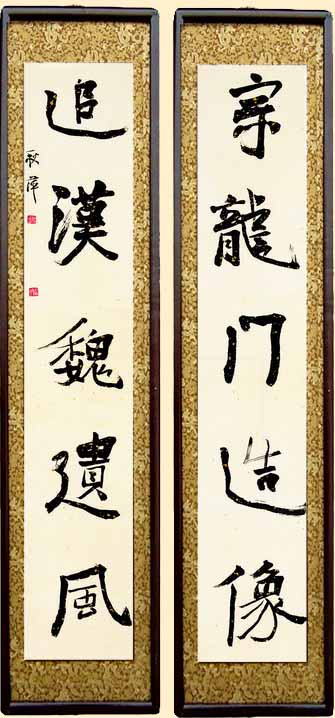 宗龍门造像
追漢魏遺風
秋萍